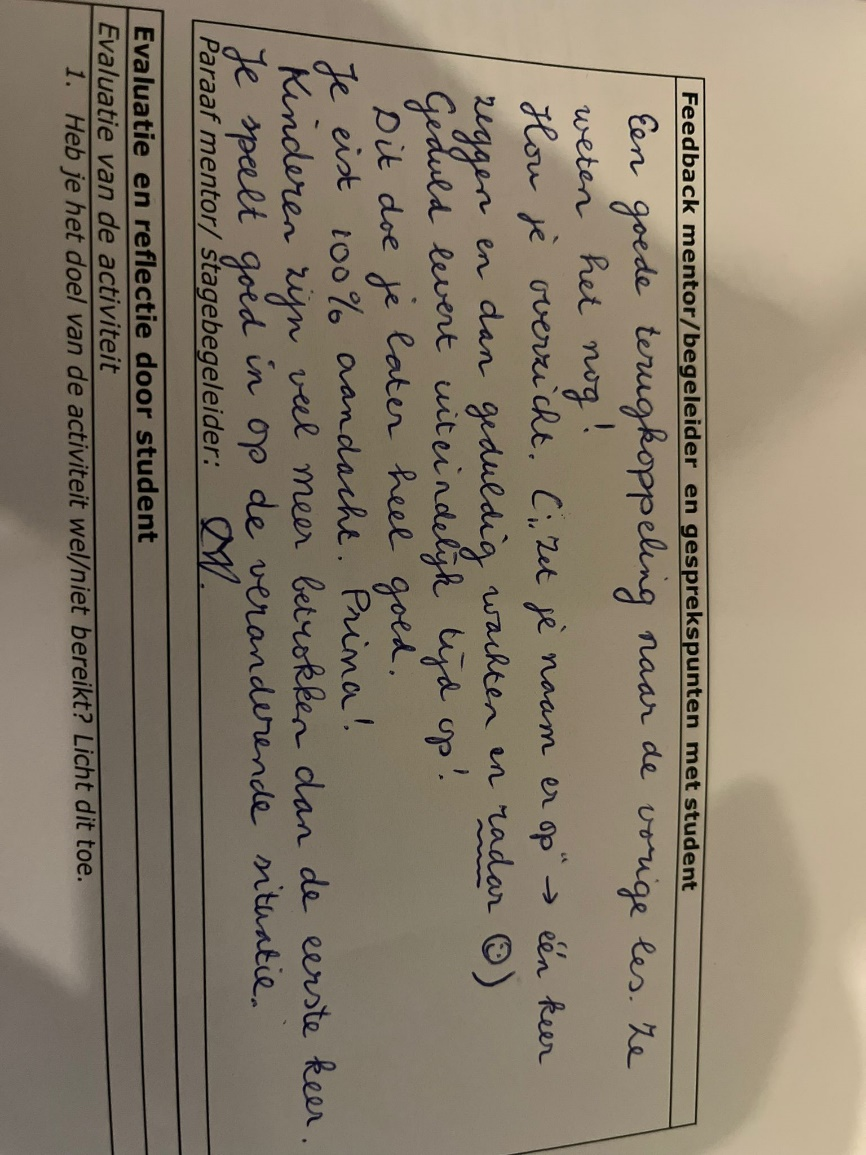 Feedback mentor/begeleider en gesprekspunten met student
Een goede terugkoppeling naar de vorige les. Ze
weten het nog!
Hou je overzicht. (,,Zet je naam er op" → één keer
zeggen en dan geduldig wachten en radar ☺)
Geduld levert uiteindelijk tijd op!
Dit doe je later heel goed.
Je eist 100% aandacht. Prima!
Kinderen zijn veel meer betrokken dan de eerste keer.
Je speelt goed in op de veranderende situatie.
Paraaf mentor/ stagebegeleider:
Evaluatie en reflectie door student
Evaluatie van de activiteit
1. Heb je het doel van de activiteit wel/niet bereikt? Licht dit toe.